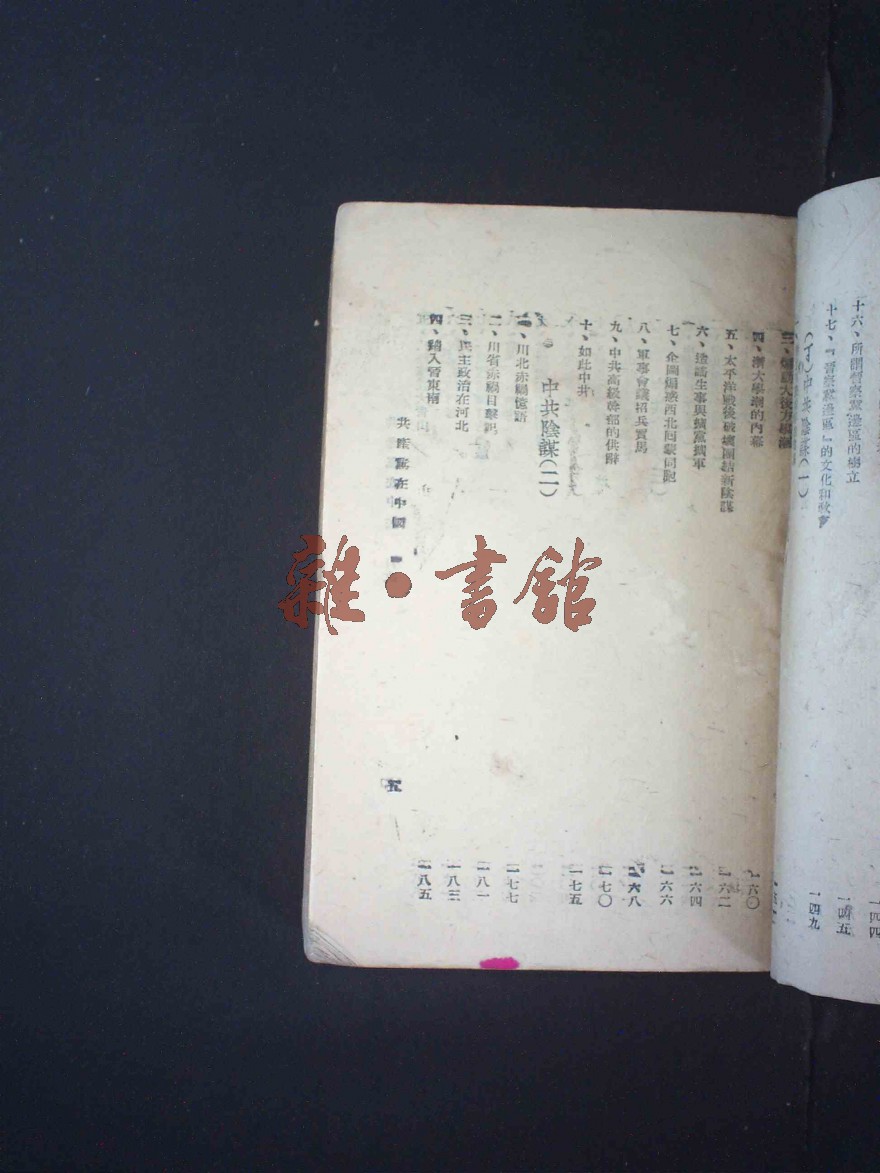 十六、所謂晉察冀邊區的樹立
一四四
十七、『晉察冀邊區』的文化和政
一四五
（丁）中共陰謀（一）
一四九
四、浙大學潮的內幕
一六〇
五、太平洋戰後破壞團結新陰謀
一六二
六、造謠生事與擴黨擴軍
一六四
七、企圖煽惑西北回蒙同胞
一六六
八、軍事會議招兵買馬
一六八
九、中共高級幹部的供辭
一七〇
十、如此中共
一七五
中共陰謀（二）
一、川北赤禍憶語
一七七
二、川省赤禍目擊記
一八一
三、民主政治在河北
一八三
四、竄入晉東南
一八五
共產黨在中國
五
雜·書館